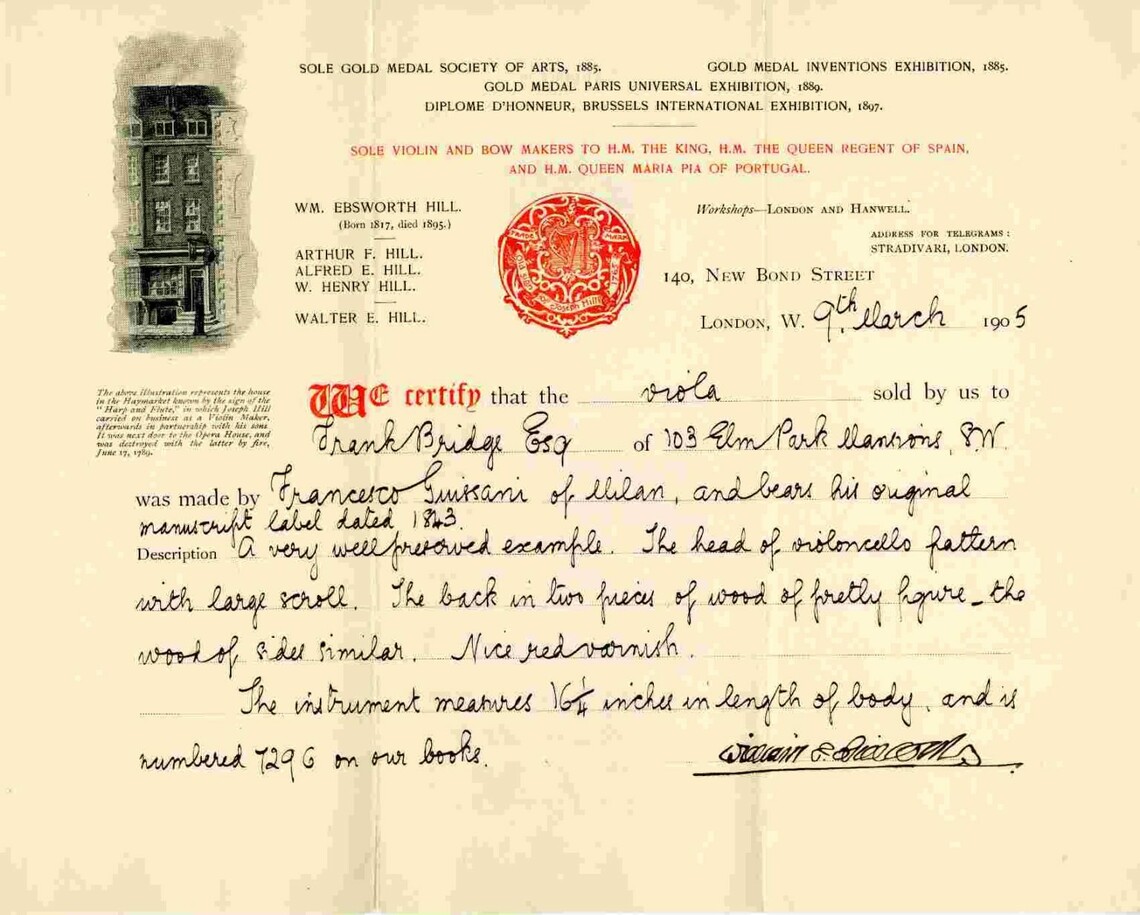 SOLE GOLD MEDAL SOCIETY OF ARTS, 1885. GOLD MEDAL INVENTIONS EXHIBITION, 1885.
GOLD MEDAL PARIS UNIVERSAL EXHIBITION, 1889.
DIPLOME D'HONNEUR, BRUSSELS INTERNATIONAL EXHIBITION, 1897.
SOLE VIOLIN AND BOW MAKERS TO H.M. THE KING, H.M. THE QUEEN REGENT OF SPAIN,
AND H.M. QUEEN MARIA PIA OF PORTUGAL.
WM. EBSWORTH HILL.
(Born 1817, died 1895.)
ARTHUR F. HILL.
ALFRED E. HILL.
W. HENRY HILL.
WALTER E. HILL.
TRADE MARK
of Joseph Hill
1762
Workshops—LONDON AND HANWELL.
ADDRESS FOR TELEGRAMS:
STRADIVARI, LONDON.
140, NEW BOND STREET
LONDON, W. 9th March 1905
The above illustration represents the house
in the Haymarket known by the sign of the
"Harp and Flute," in which Joseph Hill
carried on business as a Violin Maker,
afterwards in partnership with his sons.
It was next door to the Opera House, and
was destroyed with the latter by fire,
June 17, 1789.
WE certify that the viola sold by us to
Frank Bridge Esq of 103 Elm Park Mansions, S.W.
was made by Francesco Guissani of Milan, and bears his original
manuscript label dated 1843.
Description A very well preserved example. The head of violoncello pattern
with large scroll. The back in two pieces of wood of pretty figure - the
wood of sides similar. Nice red varnish.
The instrument measures 16¼ inches in length of body, and is
numbered 7296 on our books.
William E. Hill & Sons